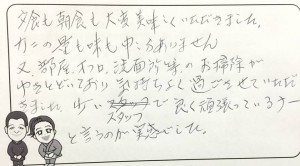 夕食も朝食も大変美味しくいただきました。
カニの量も味も申し分ありません
又、部屋、フロ、洗面所等のお掃除が
ゆきとどいており、気持ちよく過ごさせていただ
きました。少い
スタッフで良く頑張っているナー
と言うのが実感でした。